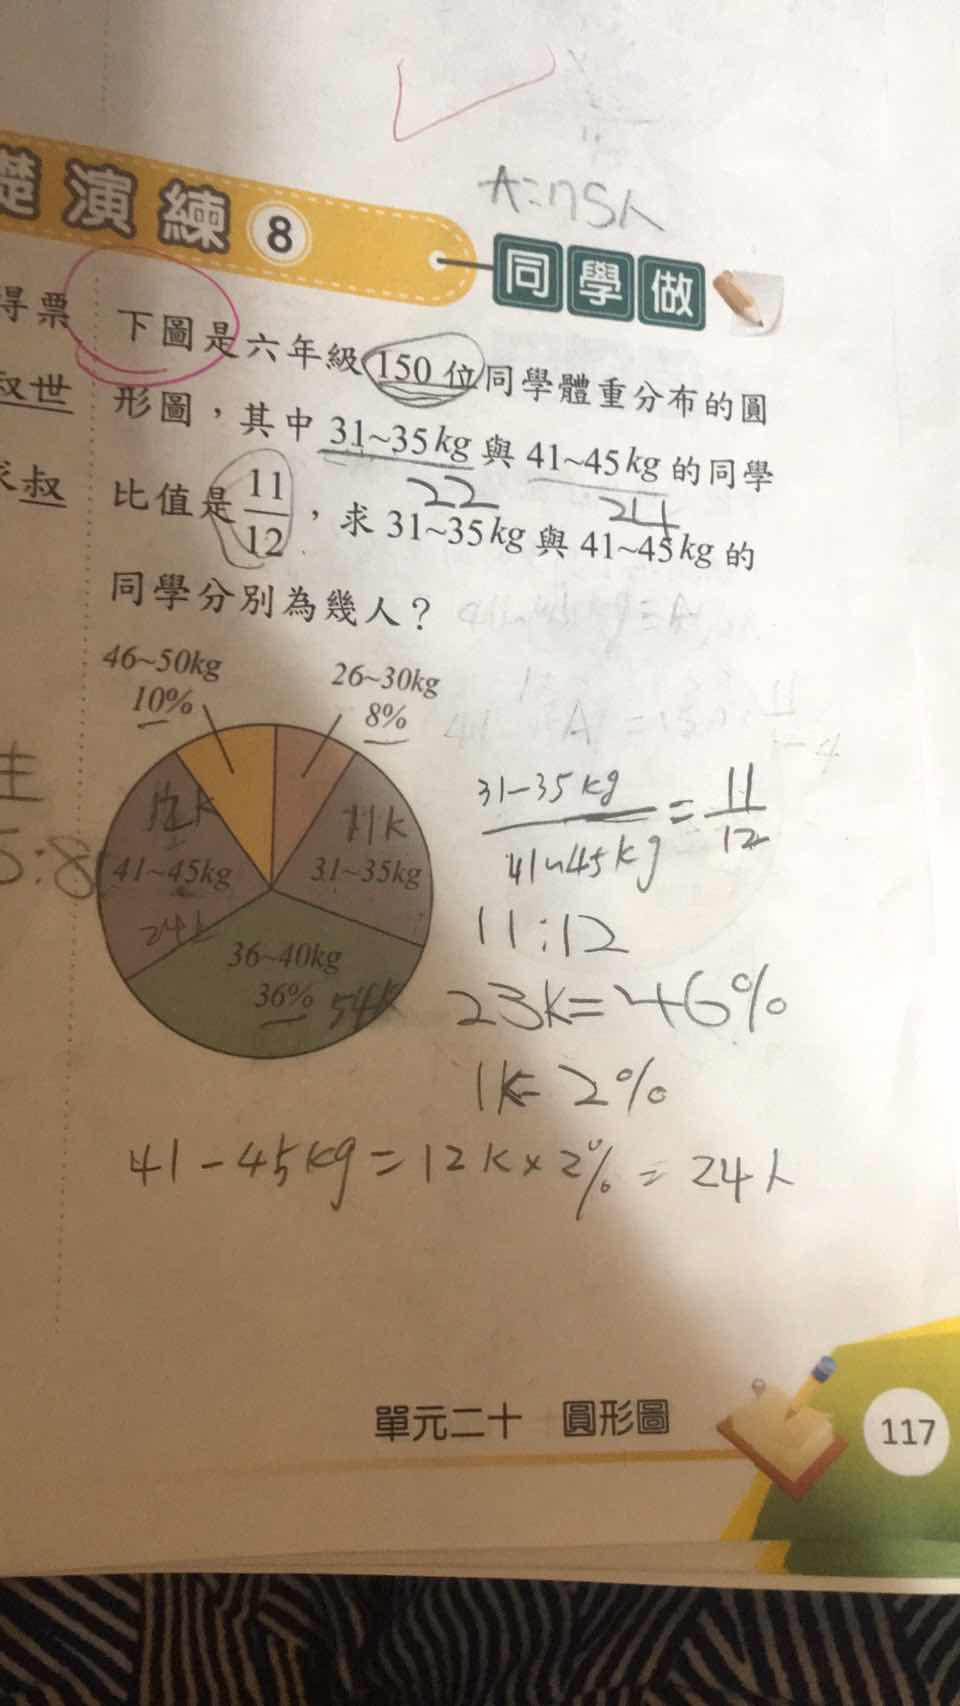 礎演練 8
同學做
得票
叔世
求叔
下圖是六年級150位同學體重分布的圓
形圖，其中31~35kg與41~45kg的同學
22
24
比值是11/12，求31~35kg與41~45kg的
同學分別為幾人？
46~50kg
10%
26~30kg
8%
12k
41~45kg
24k
11k
31~35kg
36~40kg
36%
54k
5:8
31-35kg/41~45kg=11/12
11:12
23k=46%
1k=2%
41-45kg=12k×2%=24人
單元二十 圓形圖
117